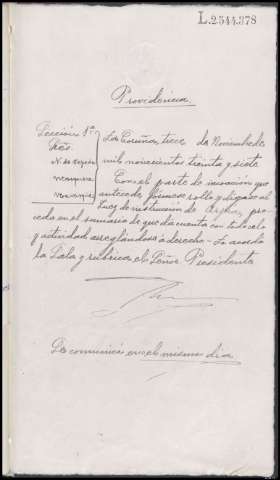 L.2544.378
Providencia
Sección 1ª
Sres.
La Coruña, trece de Noviembre de
mil novecientos treinta y siete
Con el parte de incoación que
antecede fórmese rollo y dígase al
Juez de instrucción de proceda
en el sumario de que da cuenta con todo celo
y actividad arreglándose a derecho.- Lo acordó
la Sala y rubrica el Señor Presidente
Se comunicó en el mismo día